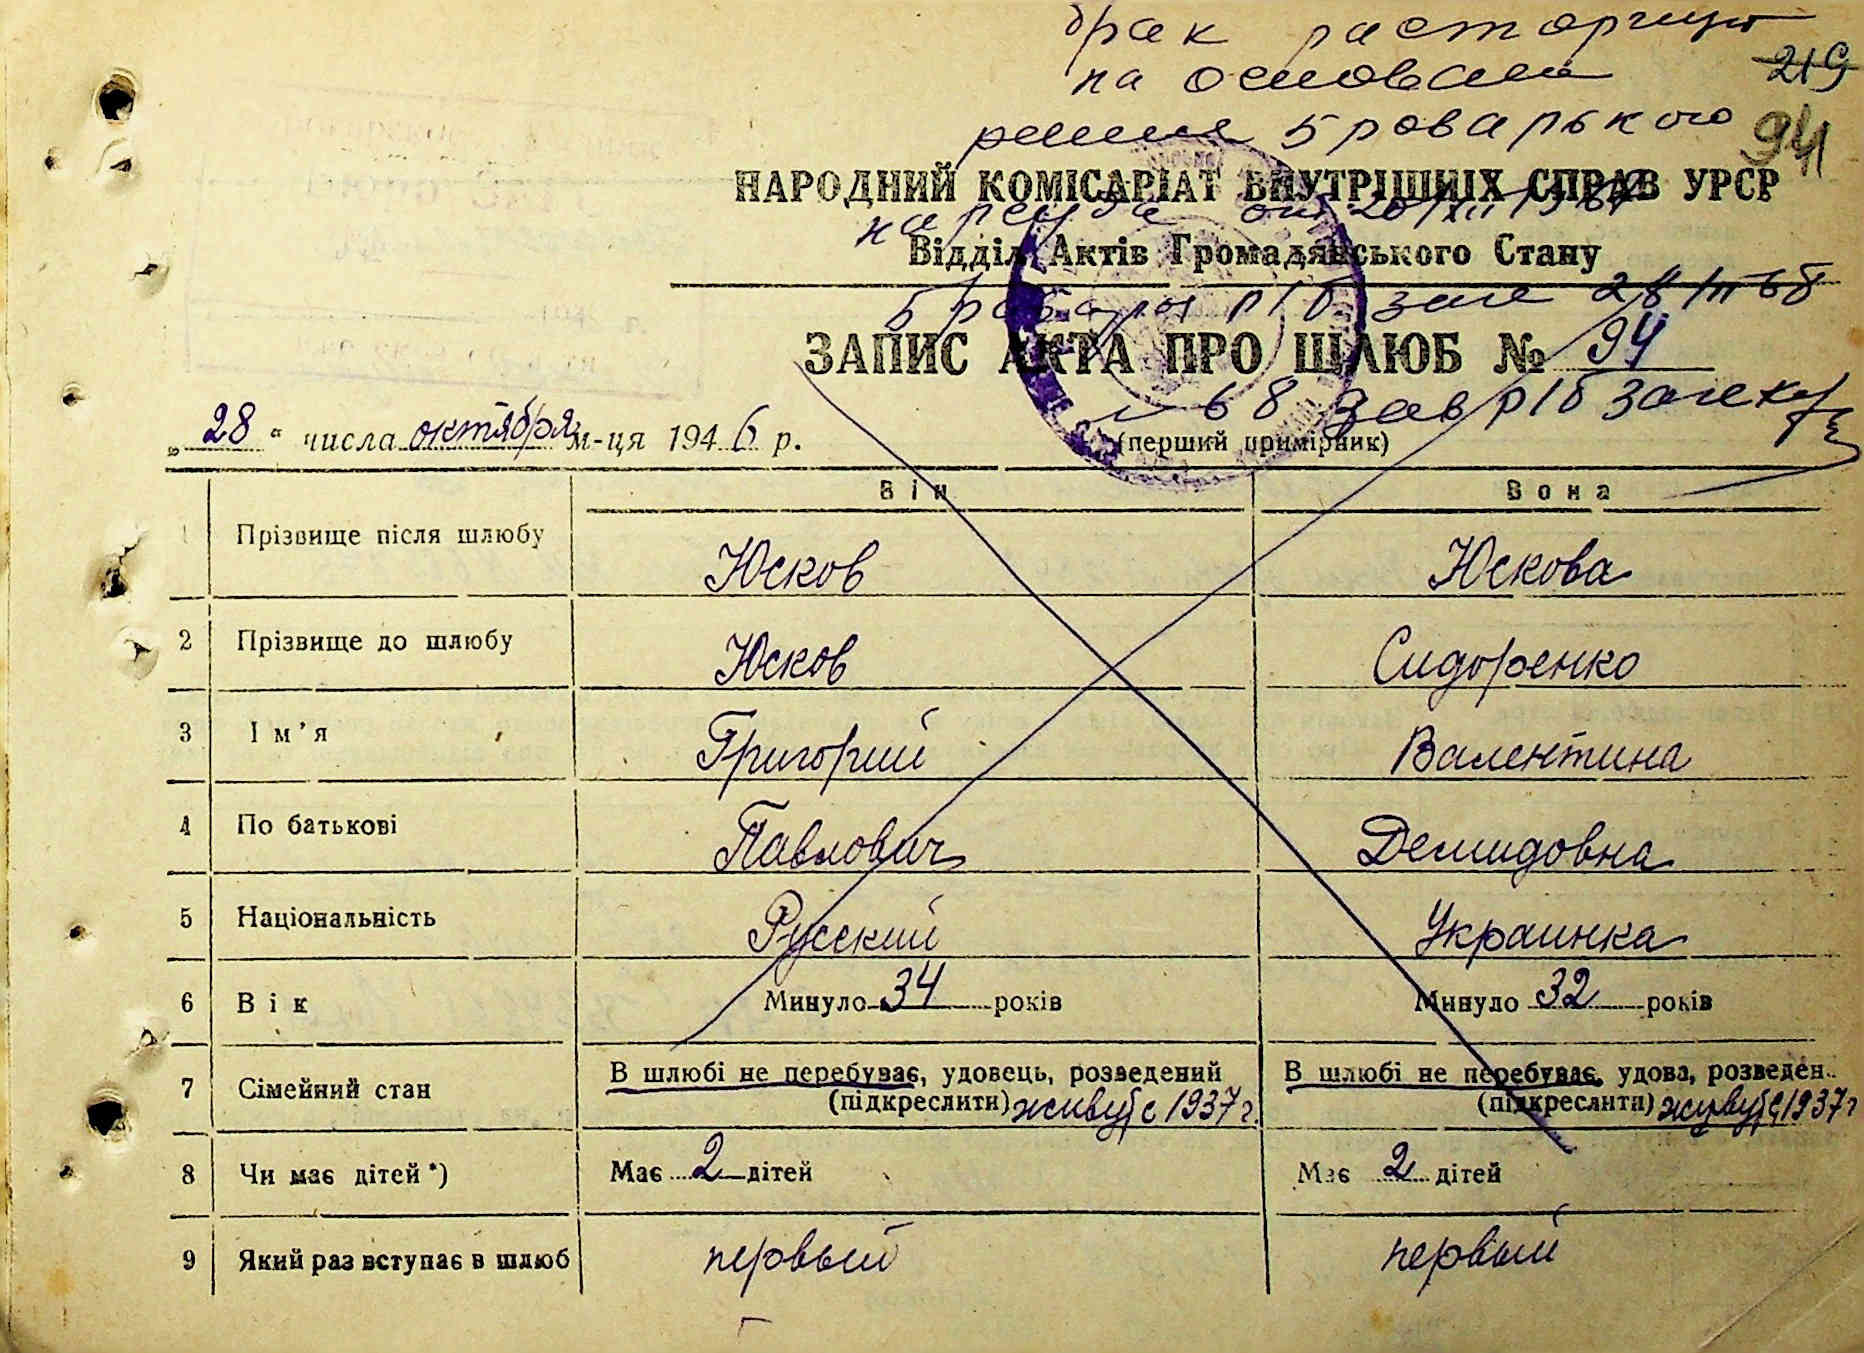 брак расторгнут
на основании
решения Броварького
219
94
НАРОДНИЙ КОМІСАРІАТ ВНУТРІШНІХ СПРАВ УРСР
нарсуда от 20/XII 1967
Відділ Актів Громадянського Стану
Бровары р/б загс 28/III 68
ЗАПИС АКТА ПРО ШЛЮБ № 94
№ 68 Зав р/б загс
„28“ числа октября м-ця 1946 р.
(перший примірник)
Він Вона
1 Прізвище після шлюбу Юсков Юскова
2 Прізвище до шлюбу Юсков Сидоренко
3 Ім’я Григорий Валентина
4 По батькові Павлович Демидовна
5 Національність Русский Украинка
6 Вік Минуло 34 років Минуло 32 років
7 Сімейний стан В шлюбі не перебуває, удовець, розведений В шлюбі не перебуває, удова, розведен
(підкреслити) живут с 1937 г. (підкреслити) живут с 1937 г
8 Чи має дітей *) Має 2 дітей Має 2 дітей
9 Який раз вступає в шлюб первый первый